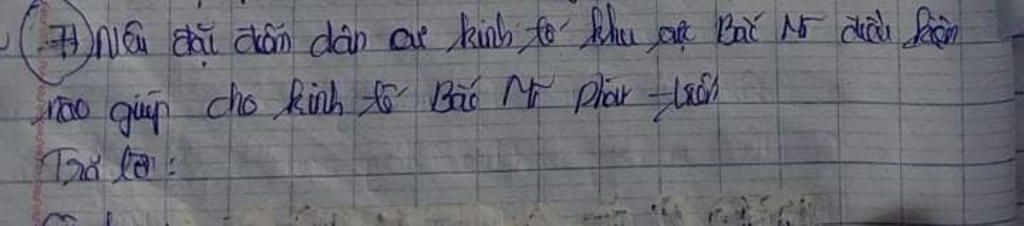 7) Nêu đặc điểm dân cư kinh tế khu vực Bắc Mĩ điều kiện
nào giúp cho kinh tế Bắc Mĩ phát triển
Trả lời: